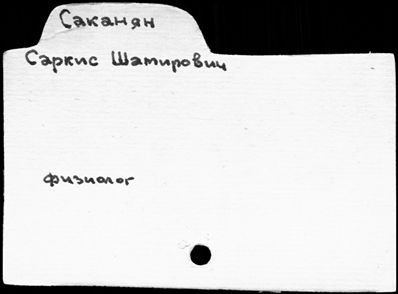 Саканян
Саркис Шамирович
физиолог